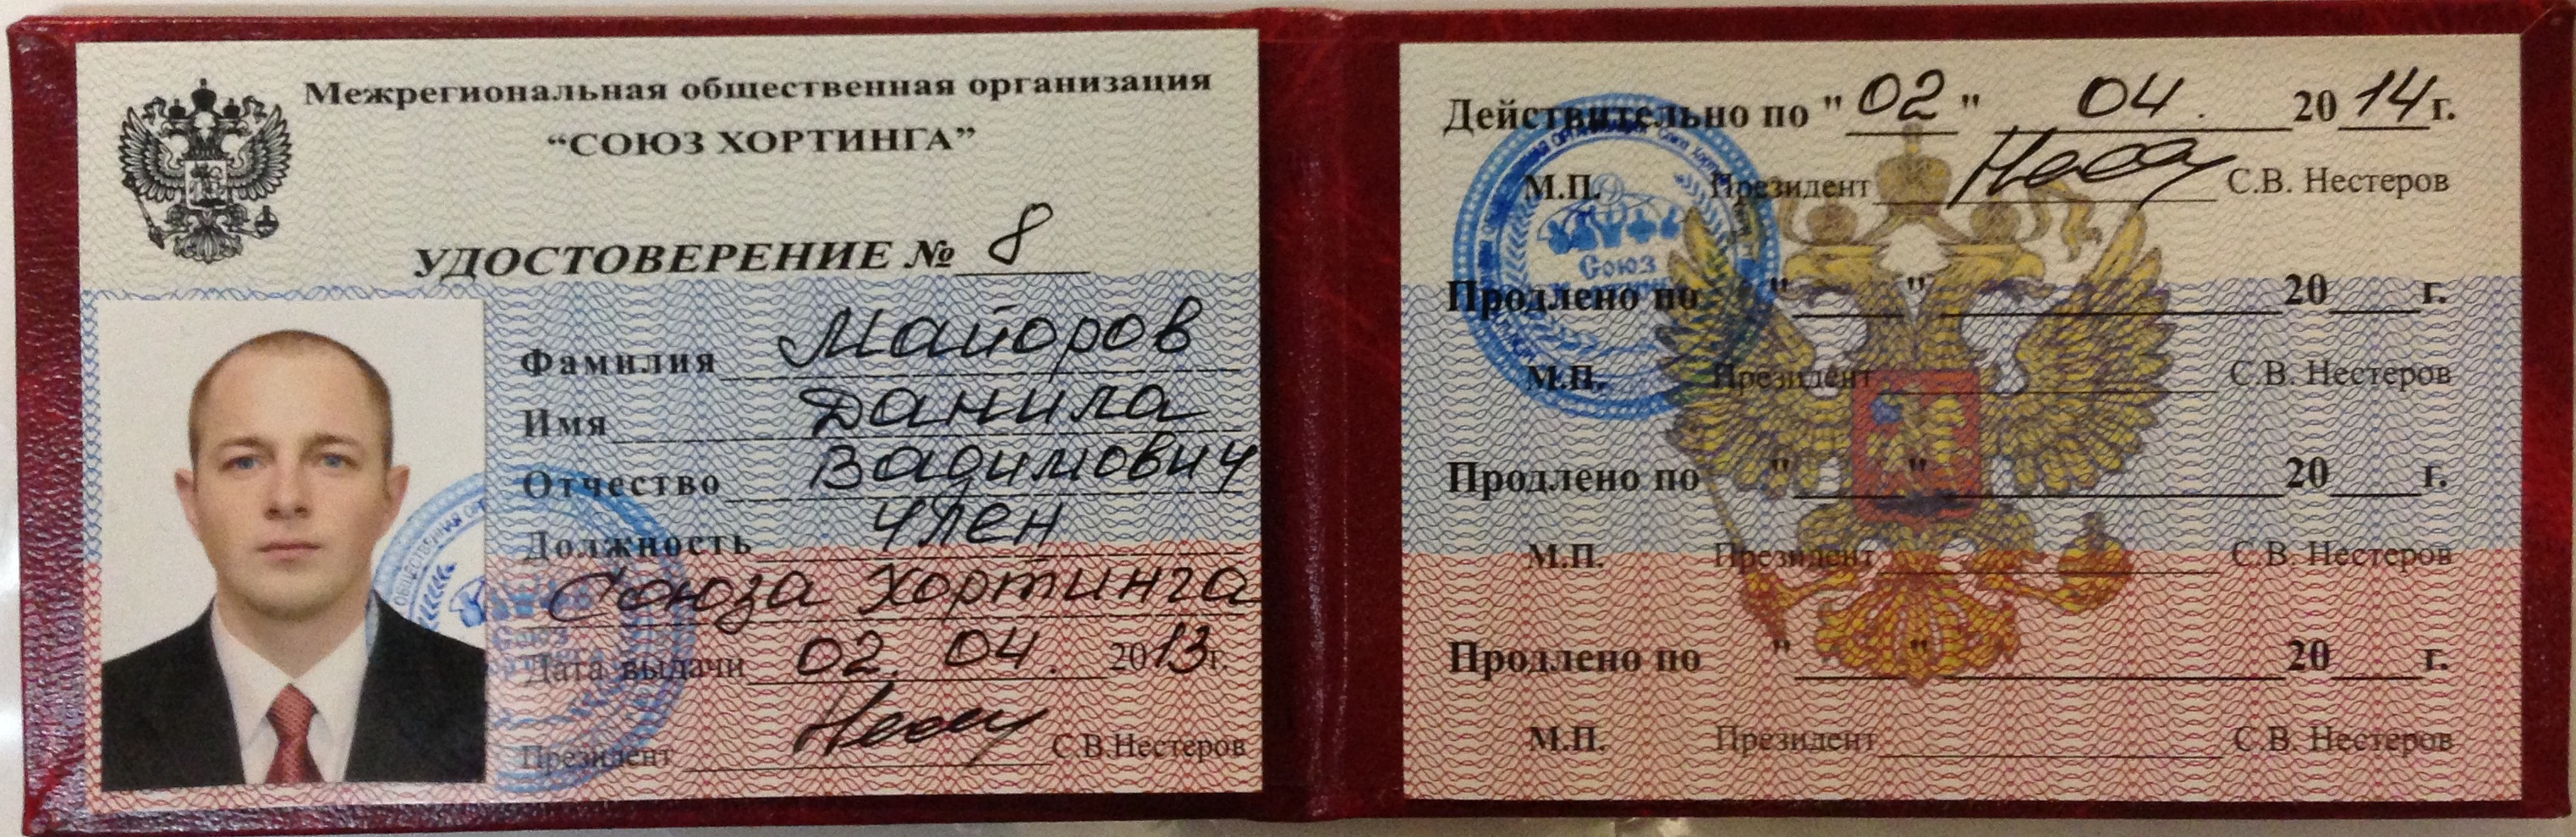 Межрегиональная общественная организация
“СОЮЗ ХОРТИНГА”
УДОСТОВЕРЕНИЕ № 8
Фамилия Майоров
Имя Данила
Отчество Вадимович
Должность член
Союза Хортинга
Дата выдачи 02. 04. 2013г.
Президент С.В.Нестеров
Действительно по "02" 04. 2014г.
М.П. Президент С.В. Нестеров
Союз
Продлено по " " 20 г.
М.П. Президент С.В. Нестеров
Продлено по " " 20 г.
М.П. Президент С.В. Нестеров
Продлено по " " 20 г.
М.П. Президент С.В. Нестеров